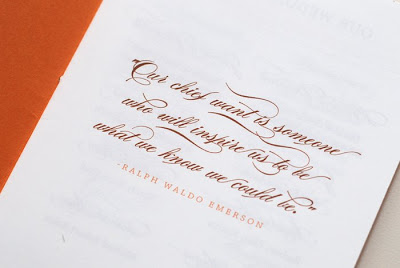 "Our chief want is someone
who will inspire us to be
what we know we could be."
-RALPH WALDO EMERSON